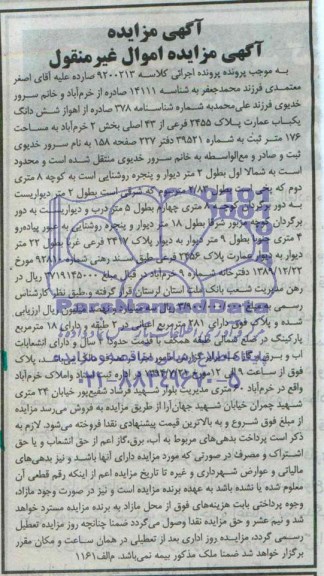 آگهی مزایده
آگهی مزایده اموال غیرمنقول
به موجب پرونده پرونده اجرائی کلاسه ۹۲۰۰۲۱۳ صادره علیه آقای اصغر
معتمدی فرزند محمدجعفر به شناسه ۱۴۱۱۱ صادره از خرم‌آباد و خانم سرور
خدیوی فرزند علی‌محمدبه شماره شناسنامه ۳۷۸ صادره از اهواز شش دانگ
یکباب عمارت پلاک ۲۴۵۵ فرعی از ۴۳ اصلی بخش ۲ خرم‌آباد به مساحت
۱۷۶ متر ثبت به شماره ۳۹۵۲۱ دفتر ۲۳۷ صفحه ۱۵۸ به نام سرور خدیوی
ثبت و صادر و مع‌الواسطه به خانم سرور خدیوی منتقل شده است و محدود
است به شمالا اول بطول ۲ متر دیوار و پنجره روشنایی است به کوچه ۸ متری
دوم که شرقی است بطول ۲ متر دیواریست
به دور برگردان کوچه ۸ متری چهارم بطول ۵ متر درب و دیواریست به دور
برگردان کوچه مزبور شرقا بطول ۱۸ متر دیوار و پنجره روشنایی به عبور پیاده‌رو
۴ متری جنوبا بطول ۹ متر دیوار به دیوار پلاک ۲۴۱۷ فرعی غربا بطول ۲۲ متر
دیوار به دیوار عمارت پلاک ۲۴۵۶ فرعی طبق سند رهنی شماره ۹۳۸۱۰ مورخ
۱۳۸۹/۱۲/۲۲ دفترخانه شماره ۹ خرم‌آباد در قبال مبلغ ۳۷۱۹۱۴۵۰۰۰ ریال در
رهن مدیریت شعب بانک ملت استان لرستان قرار گرفته و طبق نظر کارشناس
رسمی به مبلغ میلیون ریال ارزیابی
شده و پلاک فوق دارای ۴۸۱ مترمربع اعیانی در ۳ طبقه و دارای ۱۸ مترمربع
پارکینگ در ضلع شمالی طبقه همکف با قدمت حدود ۲ سال و دارای انشعابات
اب و برق پلاک
فوق از ساعت ۹ الی ۱۲ مورخ در اداره ثبت اسناد واملاک خرم‌آباد
واقع در خرم‌آباد ۶۰ متری مدیریت بلوار شهید فرشاد شفیع‌پور خیابان ۲۴ متری
شهید چمران خیابان شهید جهان‌آرا از طریق مزایده به فروش می‌رسد مزایده
از مبلغ فوق شروع و به بالاترین قیمت پیشنهادی نقدا فروخته می‌شود. لازم به
ذکر است پرداخت بدهی‌های مربوط به آب، برق،گاز اعم از حق انشعاب و یا حق
اشتراک و مصرف در صورتی که مورد مزایده دارای آنها باشد و نیز بدهی‌های
مالیاتی و عوارض شهرداری و غیره تا تاریخ مزایده اعم از اینکه رقم قطعی آن
معلوم شده یا نشده باشد به عهده برنده مزایده است و نیز در صورت وجود مازاد،
وجوه پرداختی بابت هزینه‌های فوق از محل مازاد به برنده مزایده مسترد خواهد
شد و نیم عشر و حق مزایده نقدا وصول می‌گردد ضمنا چنانچه روز مزایده تعطیل
رسمی گردد، مزایده روز اداری بعد از تعطیلی در همان ساعت و مکان مقرر
برگزار خواهد شد ضمنا ملک مذکور بیمه نمی‌باشد. م‌الف۱۱۶۱
ParsNamadData
۰۲۱-۸۸۳۴۹۶۷۰-۵